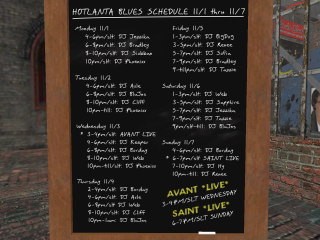 HOTLANTA BLUES SCHEDULE 11/1 thru 11/7
Monday 11/1
4-6pm/slt: DJ Jessika
6-8pm/slt: DJ Bradley
8-10pm/slt: DJ
10pm/slt: DJ Phoenix
Tuesday 11/2
4-6pm/slt: DJ
6-8pm/slt: DJ BluJas
8-10pm/slt: DJ Cliff
10pm-till: DJ Phoenix
Wednesday 11/3
* 3-4pm/slt: AVANT LIVE
4-6pm/slt: DJ Keeper
6-8pm/slt: DJ
8-10pm/slt: DJ Web
10pm-till: DJ Phoenix
Thursday 11/4
2-4pm/slt: DJ
4-6pm/slt: DJ
6-8pm/slt: DJ Web
8-10pm/slt: DJ Cliff
10pm- DJ BluJas
Friday 11/5
1-3pm/slt: DJ BigDog
3-5pm/slt: DJ Renee
5-7pm/slt: DJ
7-9pm/slt: DJ Bradley
9-till/slt: DJ
Saturday 11/6
1-3pm/slt: DJ Web
3-5pm/slt: DJ Sapphire
5-7pm/slt: DJ Jessika
7-9pm/slt: DJ
8pm/slt: DJ BluJas
Sunday 11/7
4-6pm/slt: DJ
* 6-7pm/slt: SAINT LIVE
7-10pm/slt: DJ
10pm/slt: DJ Renee
AVANT *LIVE*
3-4PM/SLT WEDNESDAY
SAINT *LIVE*
6-7PM/SLT SUNDAY